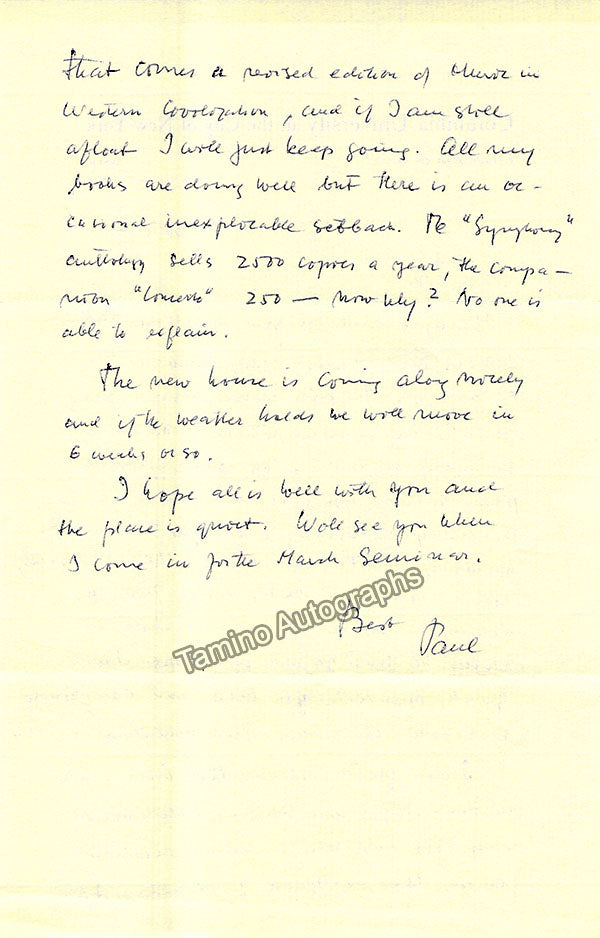 that comes a revised edition of Music in
Western Civilization, and if I am still
afloat I will just keep going. All my
books are doing well but there is an oc-
casional inexplicable setback. The "Symphony"
anthology sells 2500 copies a year, the compa-
nion "Concerto" 250 — now why? No one is
able to explain.
The new house is coming along nicely
and if the weather holds we will move in
6 weeks or so.
I hope all is well with you and
the place is quiet. Will see you when
I come in for the March Seminar.
Best
Paul
Tamino Autographs